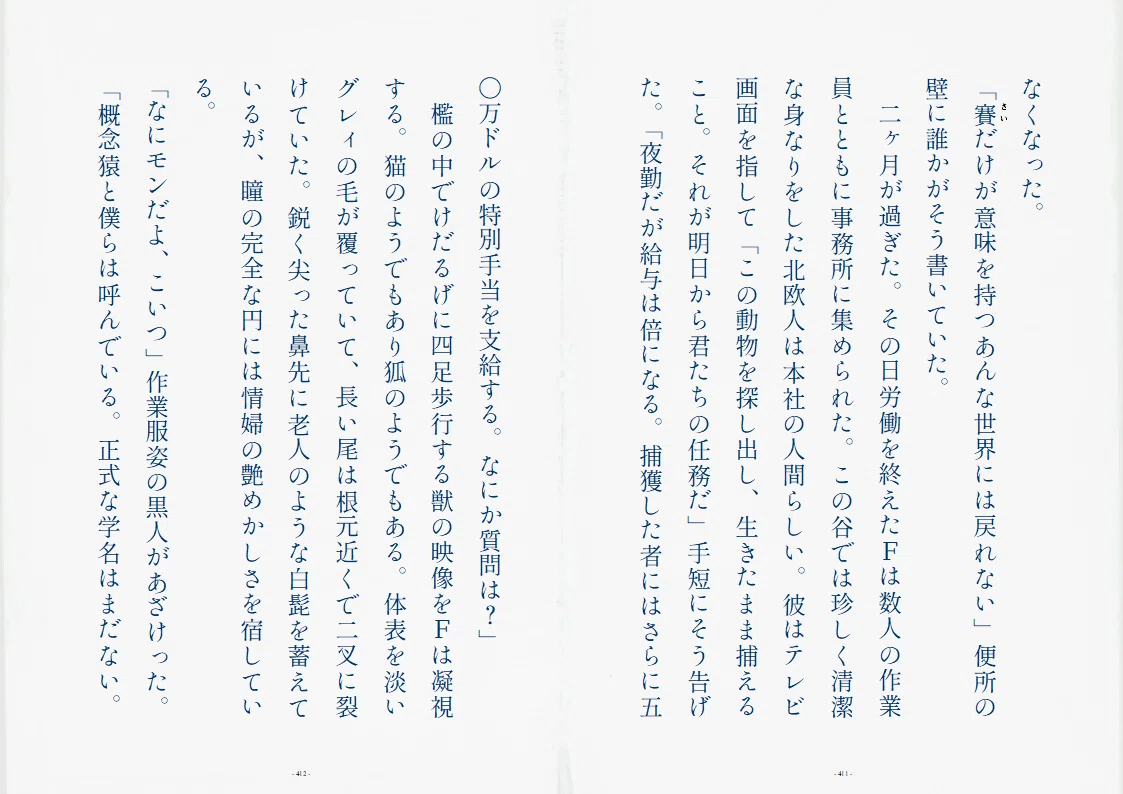 なくなった。
「賽だけが意味を持つあんな世界には戻れない」便所の
さい
壁に誰かがそう書いていた。
　二ヶ月が過ぎた。その日労働を終えたFは数人の作業
員とともに事務所に集められた。この谷では珍しく清潔
な身なりをした北欧人は本社の人間らしい。彼はテレビ
画面を指して「この動物を探し出し、生きたまま捕える
こと。それが明日から君たちの任務だ」手短にそう告げ
た。「夜勤だが給与は倍になる。捕獲した者にはさらに五
- 411 -
〇万ドルの特別手当を支給する。なにか質問は？」
　檻の中でけだるげに四足歩行する獣の映像をFは凝視
する。猫のようでもあり狐のようでもある。体表を淡い
グレィの毛が覆っていて、長い尾は根元近くで二叉に裂
けていた。鋭く尖った鼻先に老人のような白髭を蓄えて
いるが、瞳の完全な円には情婦の艶めかしさを宿してい
る。
「なにモンだよ、こいつ」作業服姿の黒人があざけった。
「概念猿と僕らは呼んでいる。正式な学名はまだない。
- 412 -